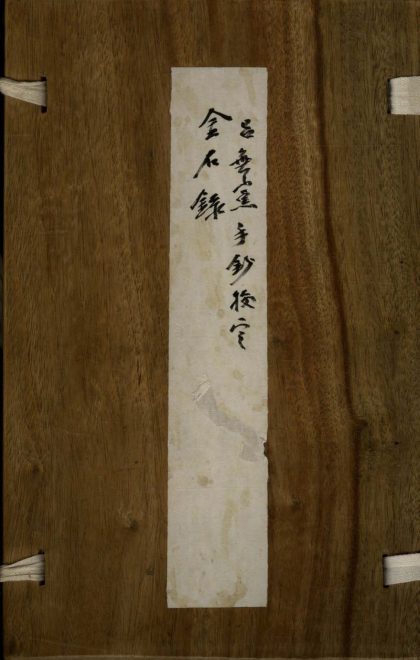 呂無黨手鈔校定
金石錄